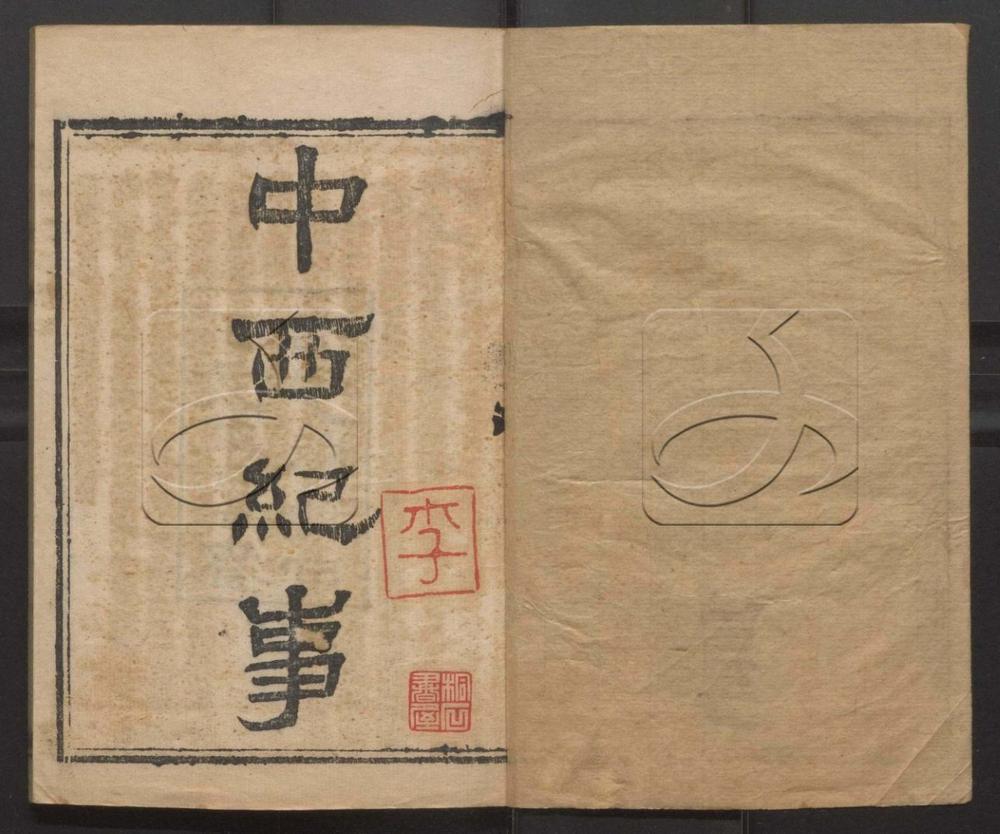 中西紀事
李
桐石書屋